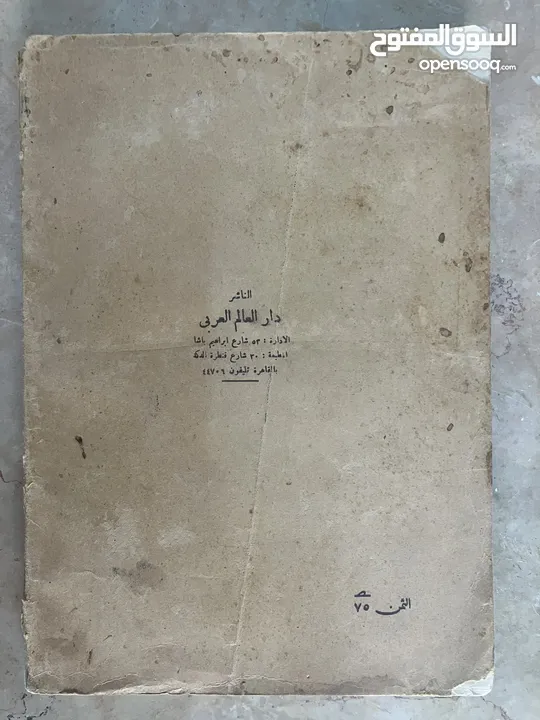 السوق المفتوح
opensooq.com
الناشر
دار العالم العربى
الادارة : ٥٣ شارع ابراهيم باشا
المطبعة : ٣٠ شارع قنطرة الدكة
بالقاهرة تليفون ٤٤٧٠٦
الثمن ٧٥